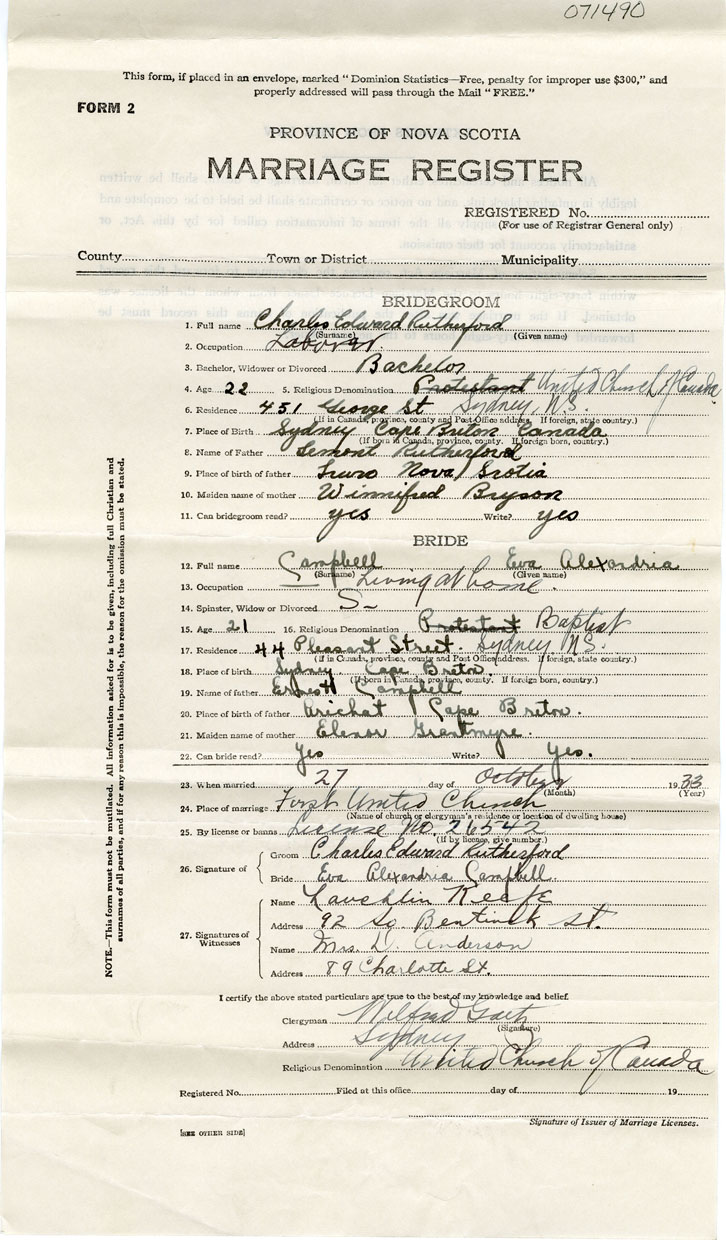 071490
This form, if placed in an envelope, marked "Dominion Statistics—Free, penalty for improper use $300," and
properly addressed will pass through the Mail "FREE."
FORM 2
PROVINCE OF NOVA SCOTIA
MARRIAGE REGISTER
REGISTERED No.
(For use of Registrar General only)
County Town or District Municipality
BRIDEGROOM
1. Full name Charles Edward Rutherford
(Surname) (Given name)
2. Occupation Laborer.
3. Bachelor, Widower or Divorced Bachelor
4. Age 22 5. Religious Denomination Protestant United Church of Canada
6. Residence 451 George St Sydney, N.S.
(If in Canada, province, county and Post Office address. If foreign, state country.)
7. Place of Birth Sydney Cape Breton Canada
(If born in Canada, province, county. If foreign born, country.)
8. Name of Father Rutherford
9. Place of birth of father Truro Nova Scotia
10. Maiden name of mother Winnifred Bryson
11. Can bridegroom read? yes Write? yes
BRIDE
12. Full name Campbell Eva Alexandria
(Surname) (Given name)
13. Occupation Living at home.
14. Spinster, Widow or Divorced S-
15. Age 21 16. Religious Denomination Protestant Baptist
17. Residence 44 Pleasant Street. Sydney N.S.
(If in Canada, province, county and Post Office address. If foreign, state country.)
18. Place of birth Sydney Cape Breton.
(If born in Canada, province, county. If foreign born, country.)
19. Name of father Ernest Campbell
20. Place of birth of father Arichat Cape Breton.
21. Maiden name of mother Elenor Grantmyre.
22. Can bride read? Yes Write? Yes.
23. When married 27 day of October 1933
(Month) (Year)
24. Place of marriage First United Church
(Name of church or clergyman's residence or location of dwelling house)
25. By license or banns License No. 26542
(If by licence, give number.)
26. Signature of
Groom Charles Edward Rutherford
Bride Eva Alexandria Campbell
27. Signatures of Witnesses
Name Lauchlin Keefe
Address 92 So. Bentinck St.
Name Mrs. D. Anderson
Address 89 Charlotte St.
I certify the above stated particulars are true to the best of my knowledge and belief.
Clergyman Wilfred Gaetz
(Signature)
Address Sydney
Religious Denomination United Church of Canada
Registered No. Filed at this office day of 19
Signature of Issuer of Marriage Licenses.
[SEE OTHER SIDE]
NOTE.—This form must not be mutilated. All information asked for is to be given, including full Christian and
surnames of all parties, and if for any reason this is impossible, the reason for the omission must be stated.